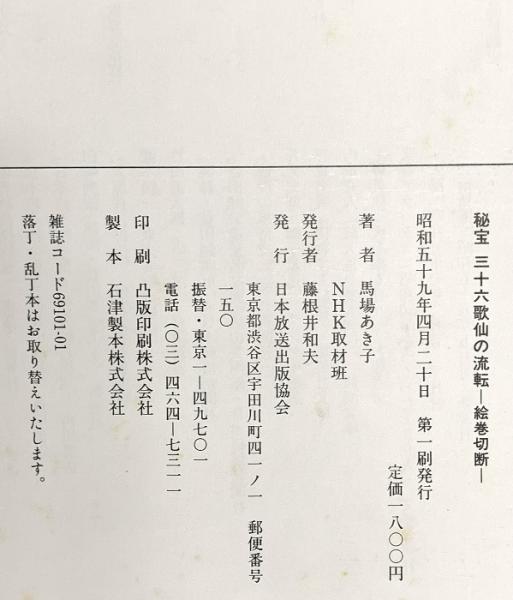 秘宝 三十六歌仙の流転―絵巻切断―
昭和五十九年四月二十日 第一刷発行
定価一八〇〇円
著者 馬場あき子
NHK取材班
発行者 藤根井和夫
発行 日本放送出版協会
東京都渋谷区宇田川町四一ノ一 郵便番号
一五〇
振替・東京一―四九七〇一
電話(〇三)四六四―七三一一
印刷 凸版印刷株式会社
製本 石津製本株式会社
雑誌コード69101-01
落丁・乱丁本はお取り替えいたします。